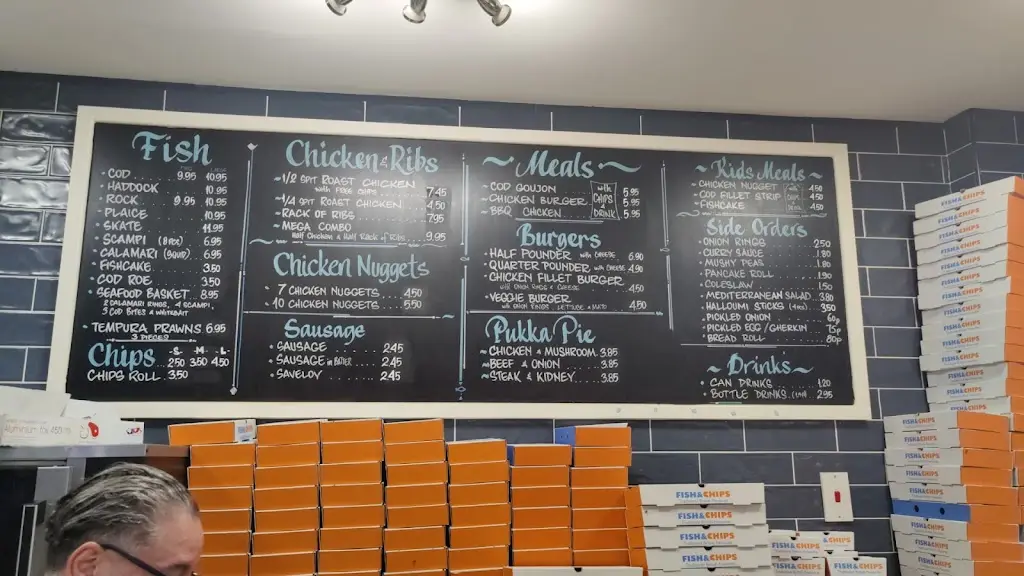 Fish
COD 9.95 10.95
HADDOCK 10.95
ROCK 9.95 10.95
PLAICE 10.95
SKATE 11.95
SCAMPI 6.95
CALAMARI (SQUID) 6.95
FISHCAKE 3.50
COD ROE 3.50
SEAFOOD BASKET 8.95
2 CALAMARI RINGS, 4 SCAMPI,
3 COD BITES & WHITEBAIT
TEMPURA PRAWNS 6.95
3 PIECES
Chips S M L
2.50 3.50 4.50
CHIPS ROLL 3.50
Chicken & Ribs
1/2 SPIT ROAST CHICKEN
with FREE CHIPS 7.45
1/4 SPIT ROAST CHICKEN 4.50
RACK OF RIBS 7.95
MEGA COMBO
Half Chicken & Half Rack of Ribs 9.95
Chicken Nuggets
7 CHICKEN NUGGETS 4.50
10 CHICKEN NUGGETS 5.50
Sausage
SAUSAGE 2.45
SAUSAGE in BATTER 2.45
SAVELOY 2.45
~ Meals ~
COD GOUJON 5.95
CHICKEN BURGER 5.95
BBQ CHICKEN 5.95
with CHIPS & DRINK
Burgers
HALF POUNDER with CHEESE 6.90
QUARTER POUNDER with CHEESE 4.90
CHICKEN FILLET BURGER
with ONION RINGS & CHEESE 4.50
VEGGIE BURGER
with ONION RINGS, LETTUCE & MAYO 4.50
Pukka Pie
CHICKEN & MUSHROOM 3.85
BEEF & ONION 3.85
STEAK & KIDNEY 3.85
~ Kids Meals ~
CHICKEN NUGGET 4.50
COD FILLET STRIP 4.50
FISHCAKE 4.50
Side Orders
ONION RINGS 2.50
CURRY SAUCE 1.80
MUSHY PEAS 1.80
PANCAKE ROLL 1.90
COLESLAW 1.50
MEDITERRANEAN SALAD 3.80
HALLOUMI STICKS 3.50
PICKLED ONION 60p
PICKLED EGG/GHERKIN 75p
BREAD ROLL 80p
~ Drinks ~
CAN DRINKS 1.20
BOTTLE DRINKS 2.95
FISH&CHIPS
FISH&CHIPS
FISH&CHIPS
FISH&CHIPS
FISH&CHIPS
FISH&CHIPS
FISH&CHIPS
FISH&CHIPS